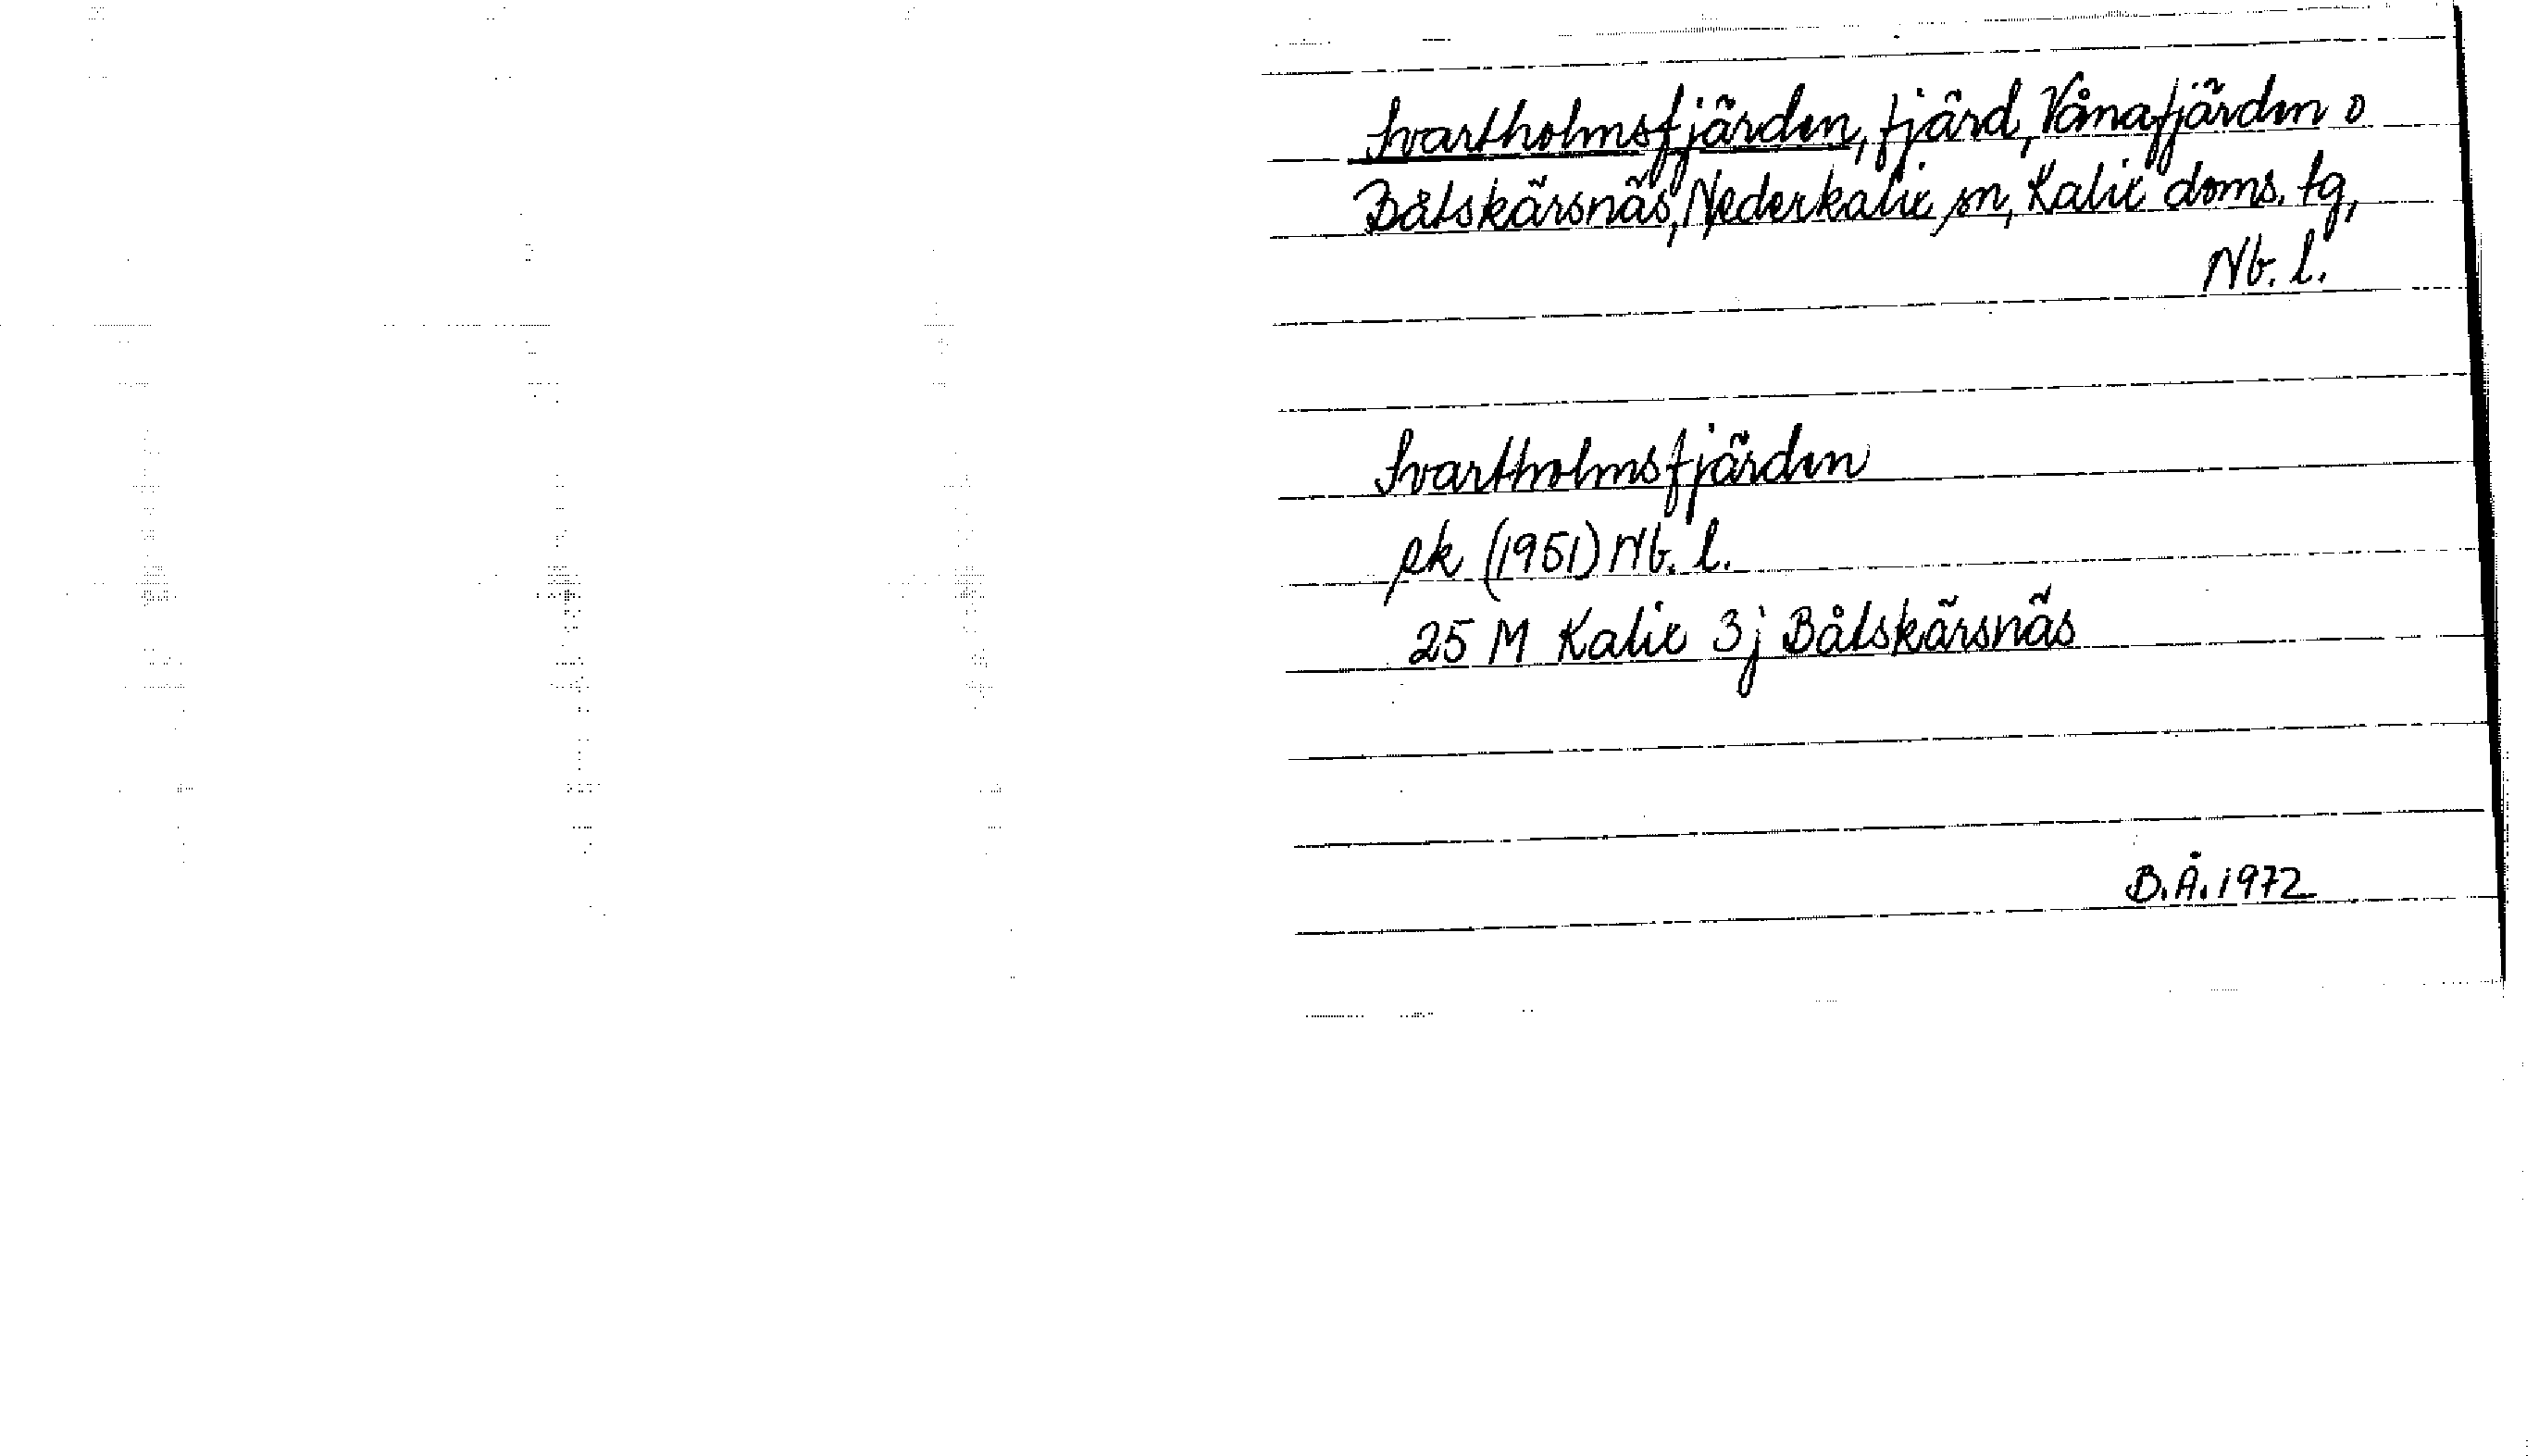 Svartholmsfjärden, fjärd, Vånafjärden o
Båtskärsnäs, Nederkalix sn, Kalix doms. tg,
Nb. l.
Svartholmsfjärden
ek (1951) Nb. l.
25 M Kalix 3j Båtskärsnäs
B.Å. 1972